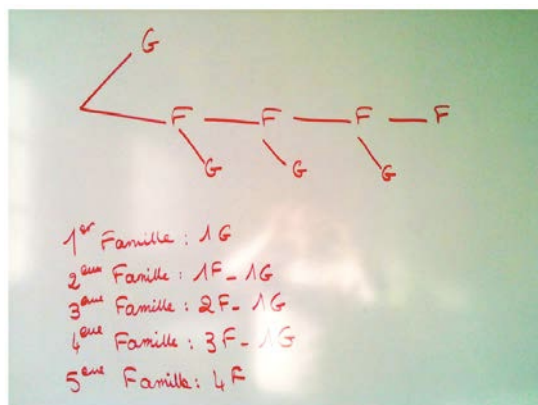 G
F F F F
G G G
1er Famille : 1G
2eme Famille : 1F - 1G
3eme Famille : 2F - 1G
4eme Famille : 3F - 1G
5eme Famille : 4F